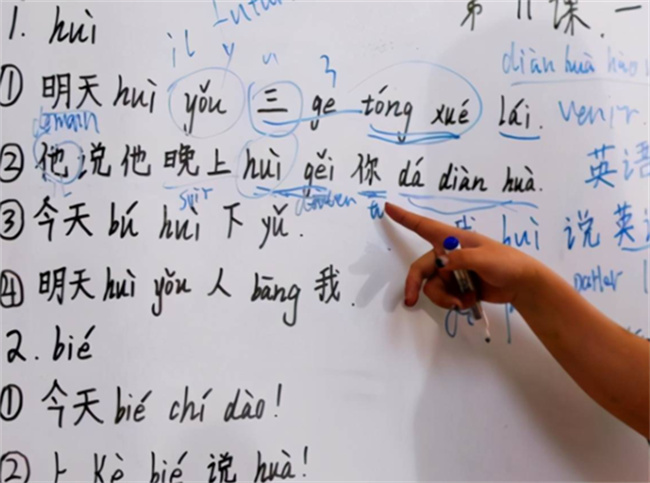 第 11 课
1. huì
diàn huà
il y
① 明天 huì yǒu 三 ge tóng xué lái. venir.
② 他说他晚上 huì gěi 你 dá diàn huà. 英语
soir
tu
③ 今天 bú huì 下 yǔ. huì 说英
④ 明天 huì yǒu 人 bāng 我.
2. bié
① 今天 bié chí dào!
② 上 Kè bié 说 huà!